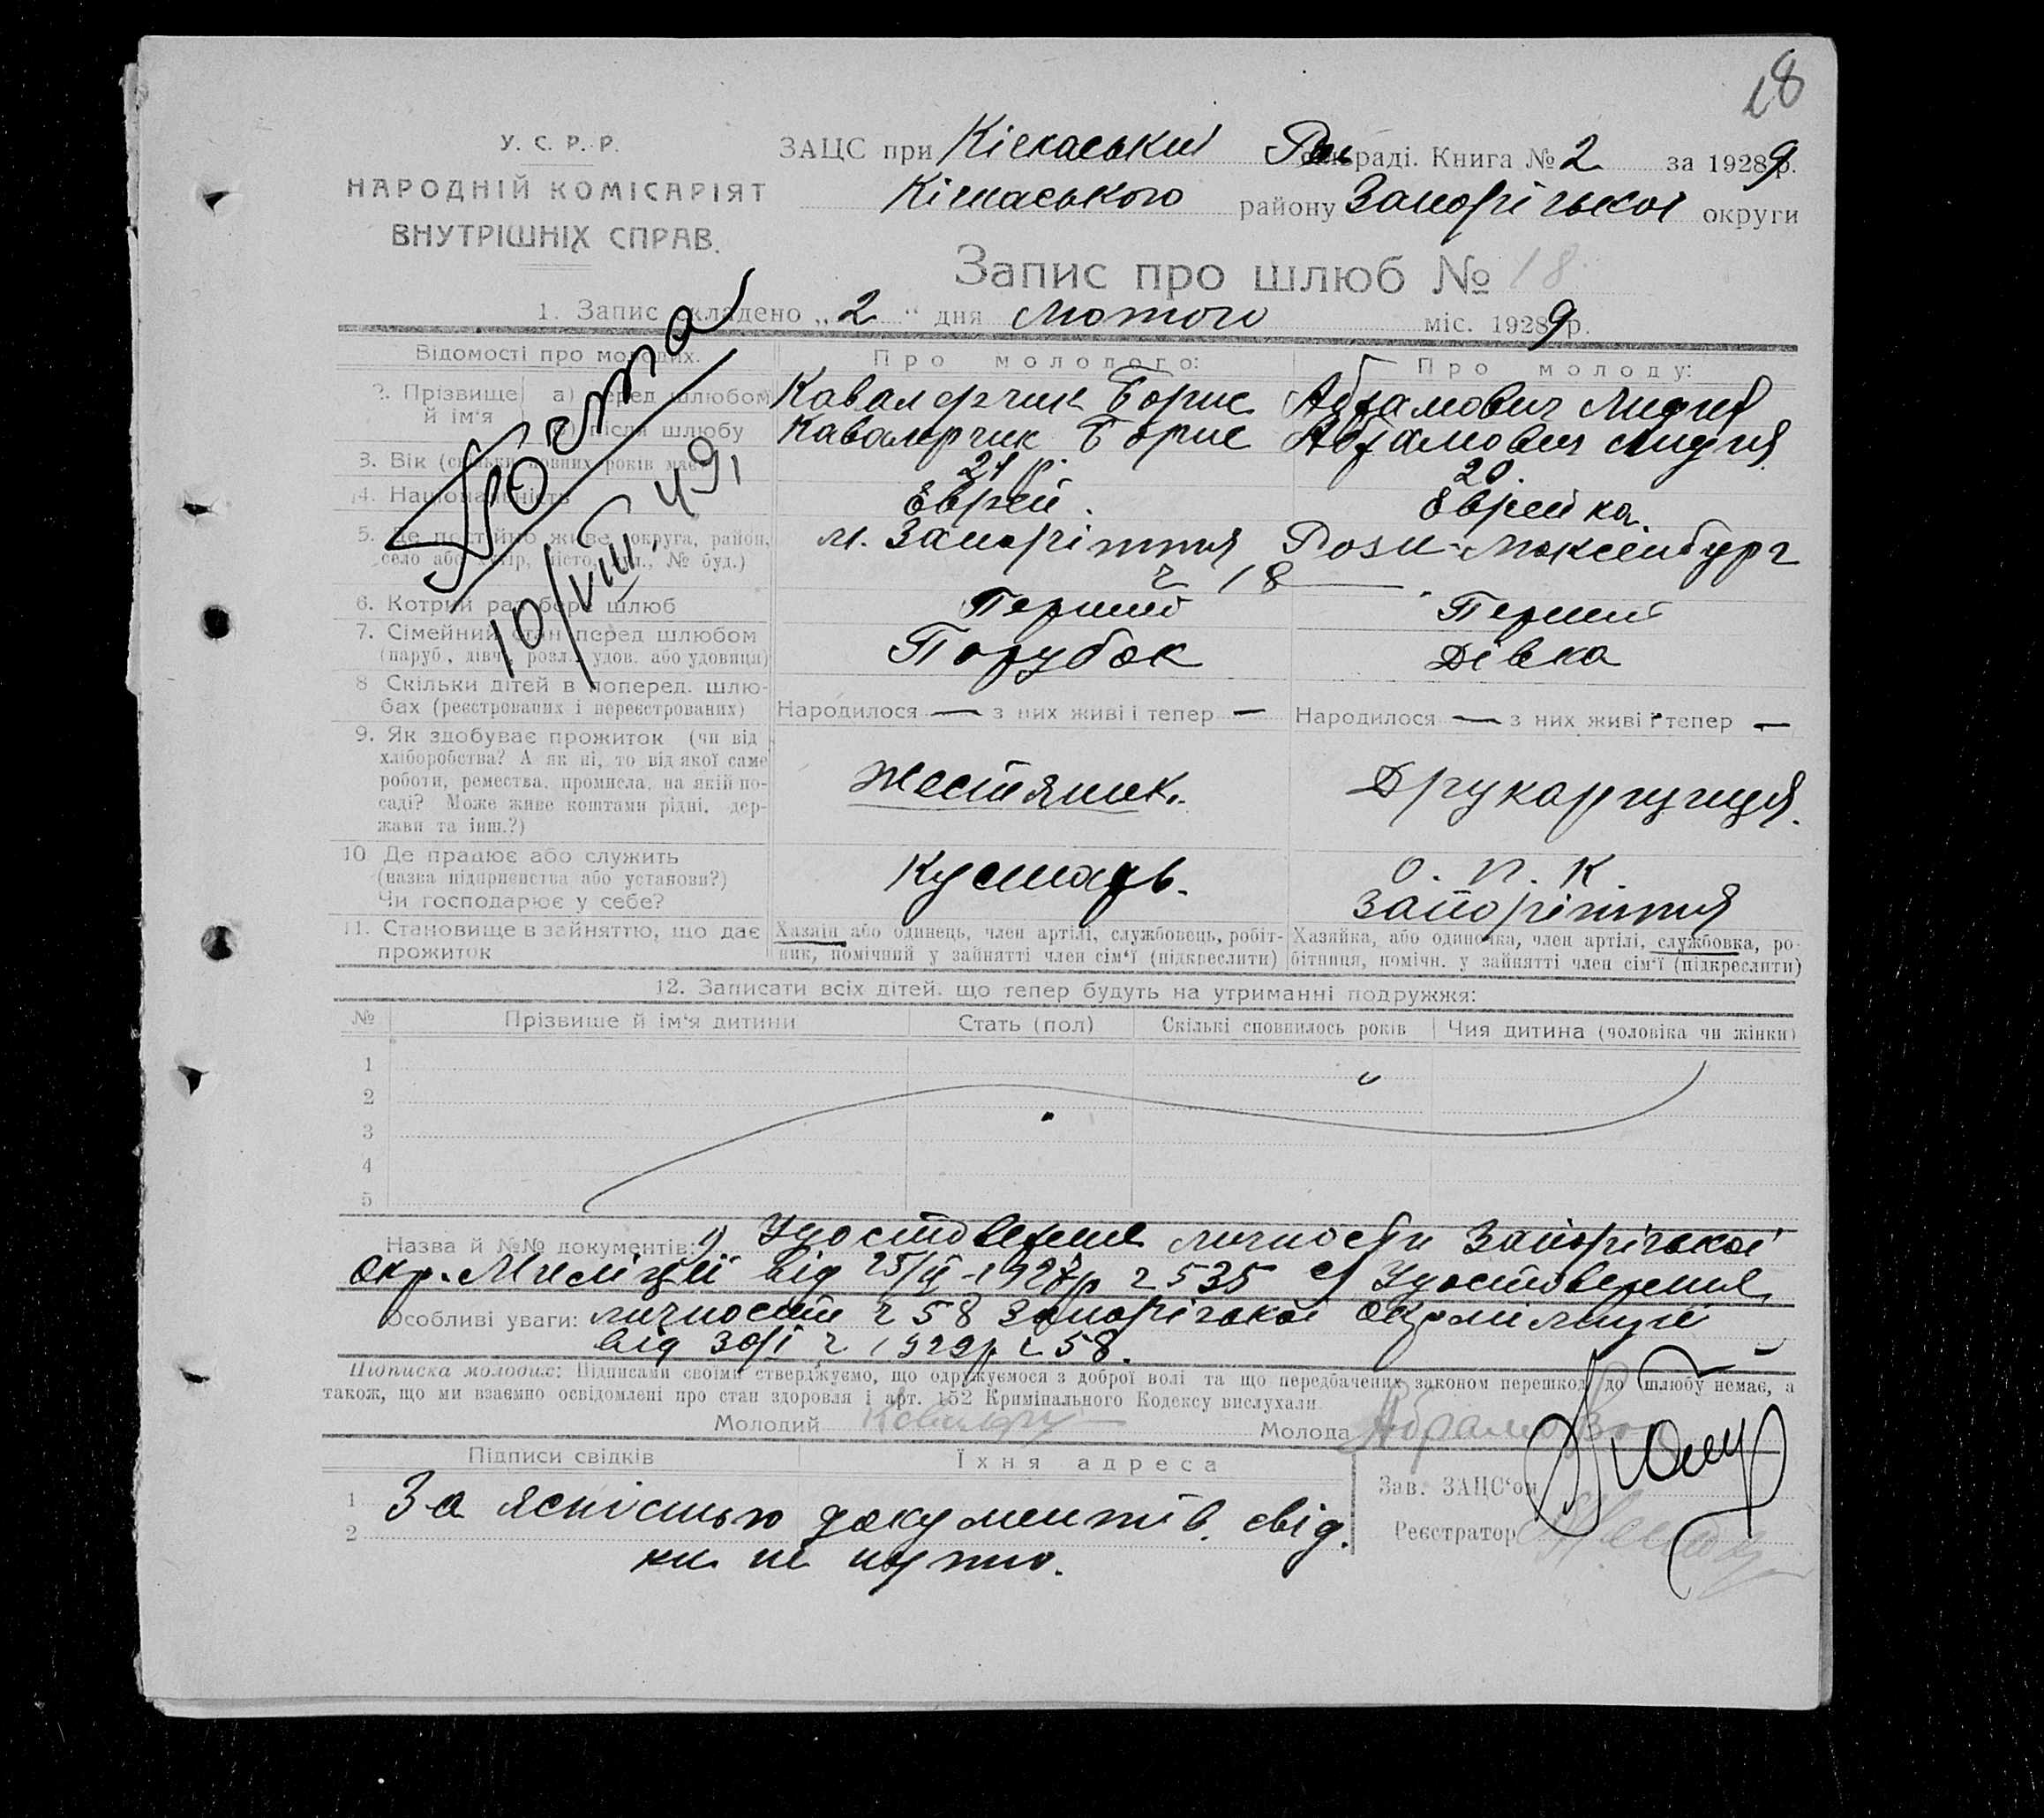 18
У. С. Р. Р.
НАРОДНІЙ КОМІСАРІЯТ
ВНУТРІШНІХ СПРАВ.
ЗАЦС при Кічкаський Рай раді. Книга № 2 за 1929 р.
Кічкаського району Запорізької округи
Запис про шлюб № 18
1. Запис складено „2“ дня Лютого міс. 1929 р.
Відомості про молодих. Про молодого: Про молоду:
2. Прізвище й ім'я а) перед шлюбом Кавалерчик Борис Абрамович Лидия
після шлюбу Кавалерчик Борис Абрамович Лидия
3. Вік (скільки повних років має) 21 р. 20
4. Національність Єврей. Єврейка.
5. Де постійно живе (округа, район, село або хутір, місто, вул., № буд.) м. Запоріжжя Роз
18
6. Котрий раз бере шлюб Перший Перший
7. Сімейний стан перед шлюбом (паруб., дівч., розл., удов. або удовиця) Парубок Дівка
8 Скільки дітей в поперед. шлюбах (реєстрованих і нереєстрованих) Народилося — з них живі і тепер — Народилося — з них живі і тепер —
9. Як здобуває прожиток (чи від
хліборобства? А як ні, то від якої саме
роботи, ремества, промисла, на якій по-
саді? Може живе коштами рідні, дер-
жави та інш.?)
Жестяник. Друкарщиця.
10 Де працює або служить
(назва підприємства або установи?)
Чи господарює у себе?
Кустарь. О. П. К.
Запоріжжя
11. Становище в зайняттю, що дає прожиток
Хазяїн або одинець, член артілі, службовець, робіт-
ник, помічний у зайнятті член сім'ї (підкреслити)
Хазяйка, або одиночка, член артілі, службовка, ро-
бітниця, помічн. у зайнятті член сім'ї (підкреслити)
12. Записати всіх дітей, що тепер будуть на утриманні подружжя:
№ Прізвище й ім'я дитини Стать (пол) Скількі сповнилось років Чия дитина (чоловіка чи жінки)
1
2
3
4
5
Назва й №№ документів: 1) Удостоверение личности Запорізької
Окр. Міліції від 25/ р ч 535 Удостоверения
Особливі уваги: личности ч 58 Запорізької Окрміліції
від 30/I 1929 р ч 58.
Підписка молодих: Підписами своїми стверджуємо, що одружуємося з доброї волі та що передбачених законом перешкод до шлюбу немає, а
також, що ми взаємно освідомлені про стан здоровля і арт. 152 Кримінального Кодексу вислухали
Молодий Молода
Підписи свідків Їхня адреса
1 За ясністью документів свід.
2 ки не нужно.
Зав. ЗАЦС'ом
Реєстратор
10/VIII 49